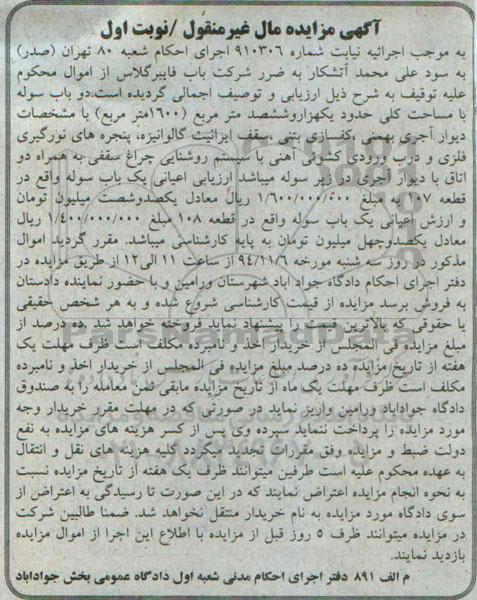 آگهی مزایده مال غیرمنقول /نوبت اول
به موجب اجرائیه نیابت شماره ۹۱۰۳۰۶ اجرای احکام شعبه ۸۰ تهران (صدر)
به سود علی محمد آتشکار به ضرر شرکت باب فایبرگلاس از اموال محکوم
علیه توقیف به شرح ذیل ارزیابی و توصیف اجمالی گردیده است.دو باب سوله
با مساحت کلی حدود یکهزاروششصد متر مربع (۱۶۰۰متر مربع) با مشخصات
دیوار آجری بهمنی ،کفسازی بتنی ،سقف ایرانیت گالوانیزه، پنجره های نورگیری
فلزی و درب ورودی کشوئی آهنی با سیستم روشنایی چراغ سقفی به همراه دو
اتاق با دیوار آجری در زیر سوله میباشد ارزیابی اعیانی یک باب سوله واقع در
قطعه ۱۰۷ به مبلغ ۱/۶۰۰/۰۰۰/۰۰۰ ریال معادل یکصدوشصت میلیون تومان
و ارزش اعیانی یک باب سوله واقع در قطعه ۱۰۸ مبلغ ۱/۴۰۰/۰۰۰/۰۰۰ ریال
معادل یکصدوچهل میلیون تومان به پایه کارشناسی میباشد. مقرر گردید اموال
مذکور در روز سه شنبه مورخه ۹۴/۱۱/۶ از ساعت ۱۱ الی۱۲ از طریق مزایده در
دفتر اجرای احکام دادگاه جواد آباد شهرستان ورامین و با حضور نماینده دادستان
به فروش برسد مزایده از قیمت کارشناسی شروع شده و به هر شخص حقیقی
یا حقوقی که بالاترین قیمت را پیشنهاد نماید فروخته خواهد شد .ده درصد از
مبلغ مزایده فی المجلس از خریدار اخذ و نامبرده مکلف است ظرف مهلت یک
هفته از تاریخ مزایده ده درصد مبلغ مزایده فی المجلس از خریدار اخذ و نامبرده
مکلف است ظرف مهلت یک ماه از تاریخ مزایده مابقی ثمن معامله را به صندوق
دادگاه جوادآباد ورامین واریز نماید در صورتی که در مهلت مقرر خریدار وجه
مورد مزایده را پرداخت ننماید سپرده وی پس از کسر هزینه های مزایده به نفع
دولت ضبط و مزایده وفق مقررات تجدید میگردد کلیه هزینه های نقل و انتقال
به عهده محکوم علیه است طرفین میتوانند ظرف یک هفته از تاریخ مزایده نسبت
به نحوه انجام مزایده اعتراض نمایند که در این صورت تا رسیدگی به اعتراض از
سوی دادگاه مورد مزایده به نام خریدار منتقل نخواهد شد. ضمنا طالبین شرکت
در مزایده میتوانند ظرف ۵ روز قبل از مزایده با اطلاع این اجرا از اموال مزایده
بازدید نمایند.
م الف ۸۹۱ دفتر اجرای احکام مدنی شعبه اول دادگاه عمومی بخش جوادآباد